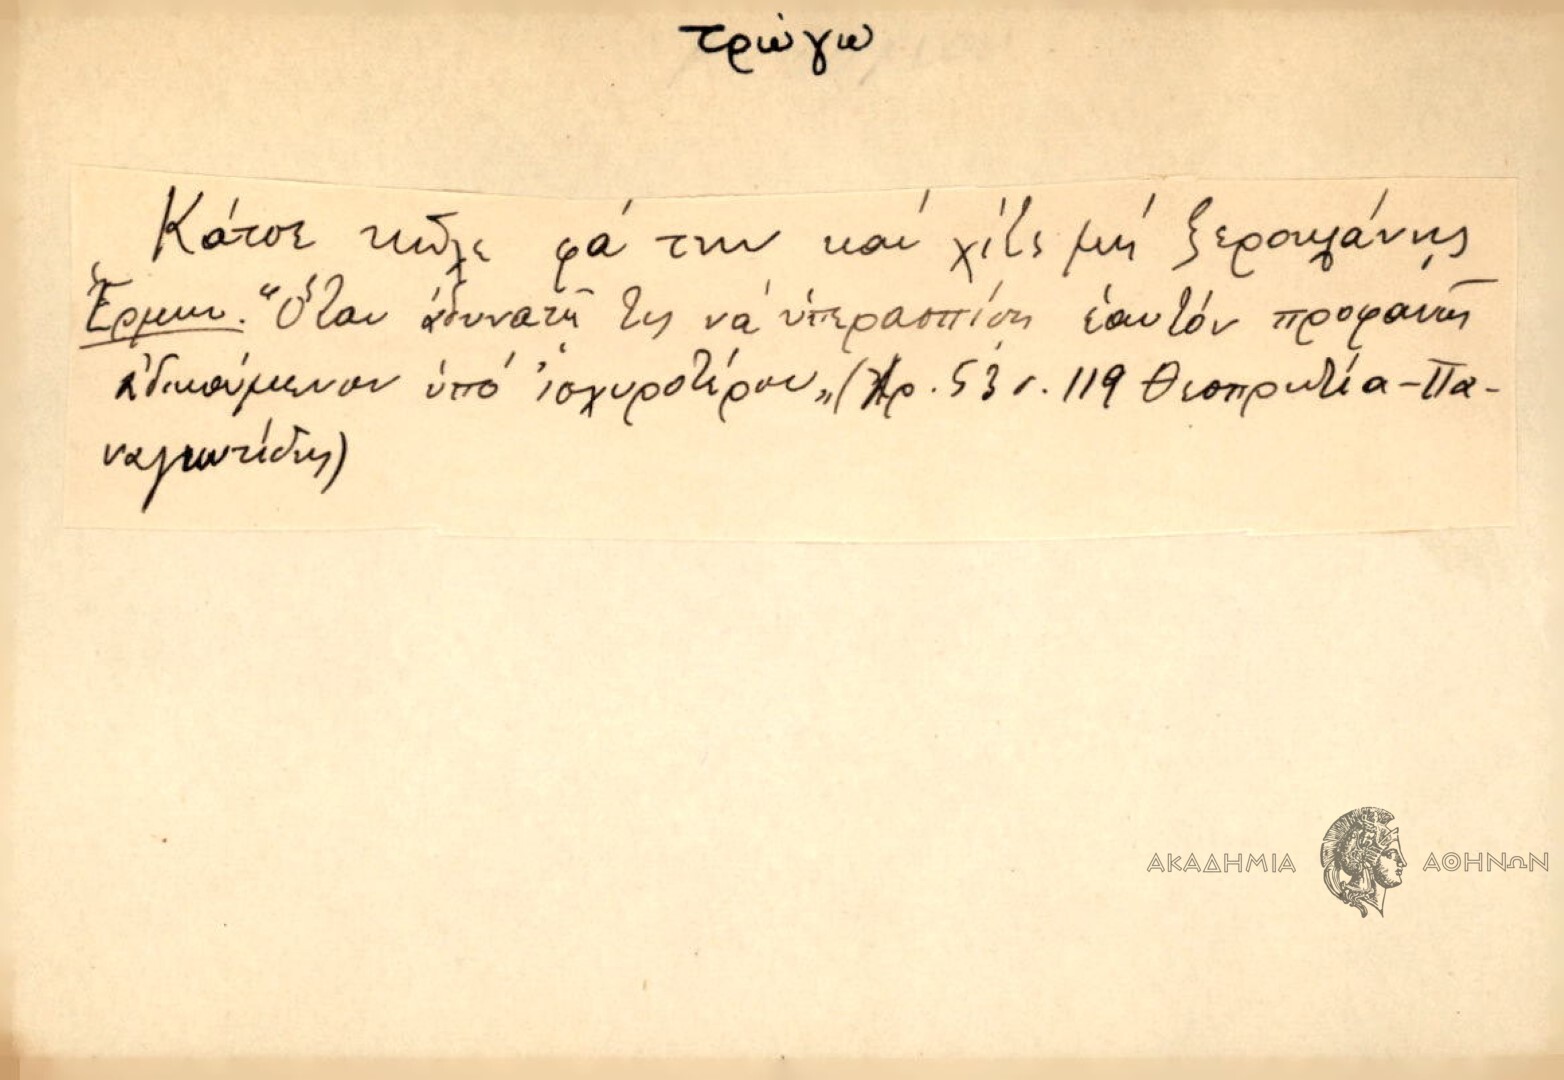 τρώγω
Κάτσε κῶλε φά την καί χέζε μή ξεροκλάνης
Ἑρμην. "Ὅταν ἀδυνατῇ τις νά ὑπερασπίσῃ ἑαυτόν προφανῶς
ἀδικούμενον ὑπό ἰσχυροτέρου" (Χρ. 53 σ. 119 Θεσπρωτία - Πα-
ναγιωτίδης)
ΑΚΑΔΗΜΙΑ ΑΘΗΝΩΝ